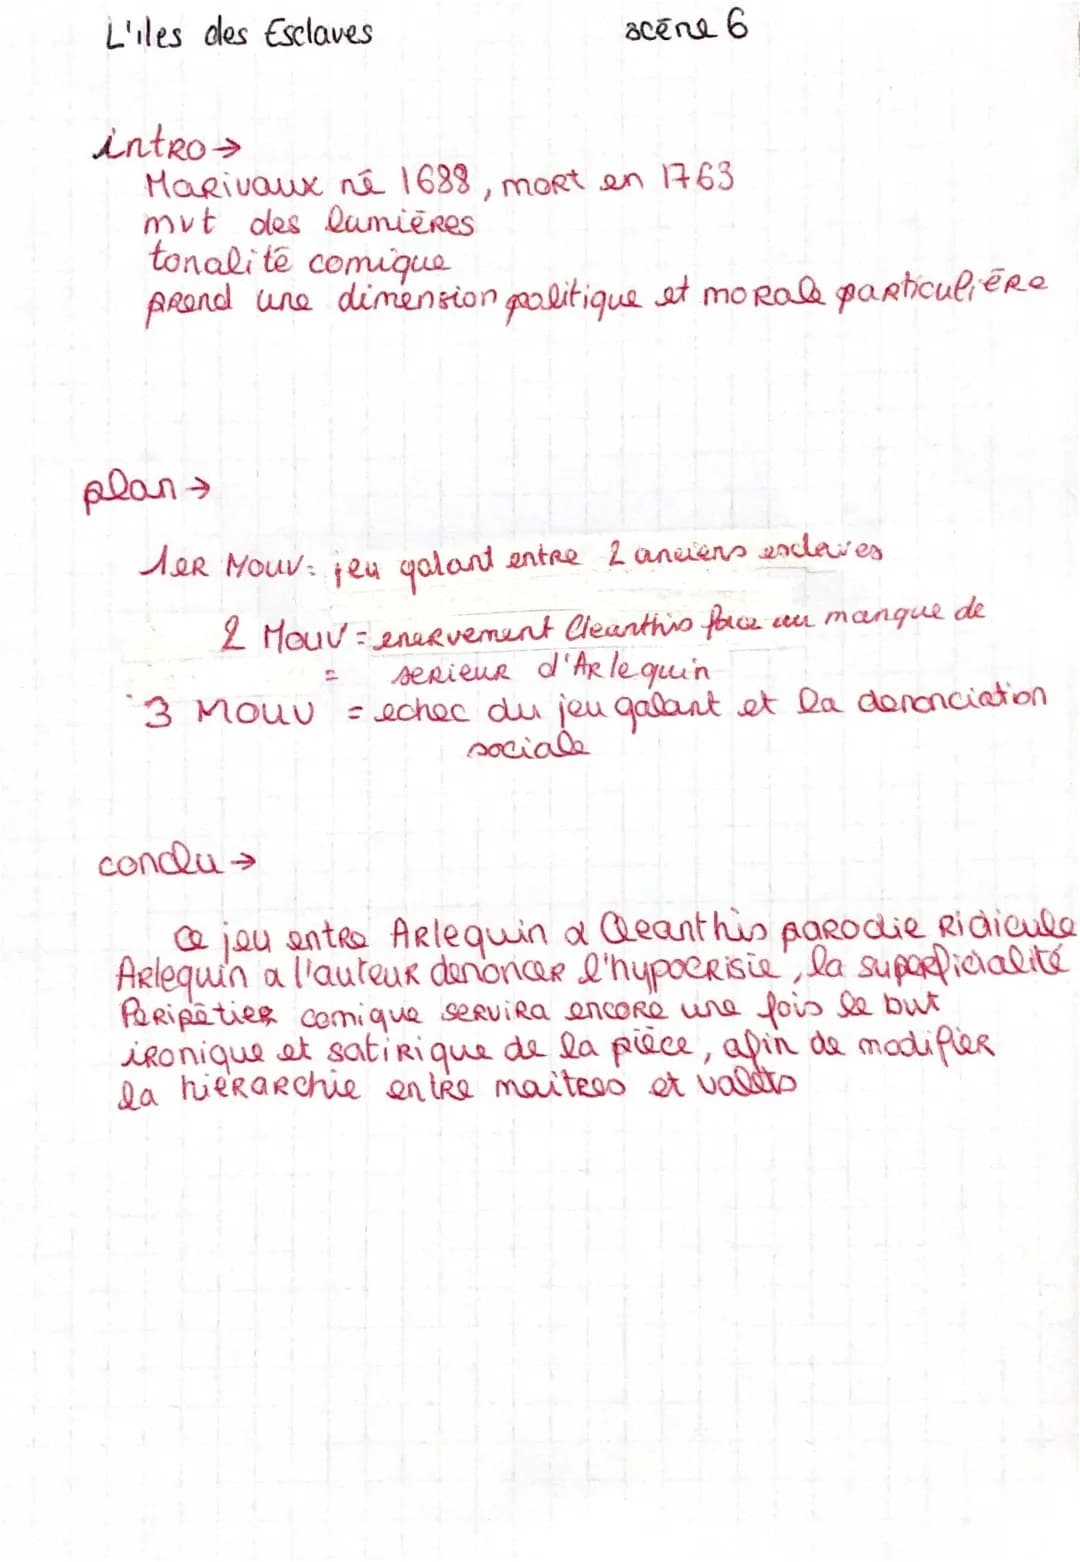 L'iles des Esclaves scène 6
intro →
Marivaux né 1688, mort en 1763
mvt des lumières
tonalité comique
prend une dimension politique et morale particulière
plan →
1er Mouv = jeu galant entre 2 anciens esclaves
2 Mouv = enervement Cleanthis face au manque de
= serieur d'Arlequin
3 Mouv = echec du jeu galant et la denonciation
sociale
conclu →
Ce jeu entre Arlequin & Cleanthis parodie Ridicule
Arlequin a l'auteur denoncer l'hypocrisie, la superficialité
Péripétier comique servira encore une fois le but
ironique et satirique de la pièce, afin de modifier
la hierarchie entre maitres et valets